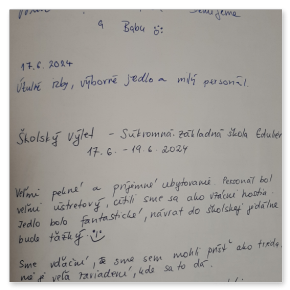 a Babu
17.6.2024
Útulné izby, výborné jedlo a milý personál.
Školský výlet - Súkromná základná škola Eduber
17.6. - 19.6 2024
Veľmi pekné a príjemné ubytovanie. Personál bol
veľmi ústretový, cítili sme sa ako vítaní hostia.
Jedlo bolo fantastické, návrat do školskej jedálne
bude ťažký.
Sme vďační, že sme sem mohli prísť ako trieda,
veľa zariadení, kde sa to dá.